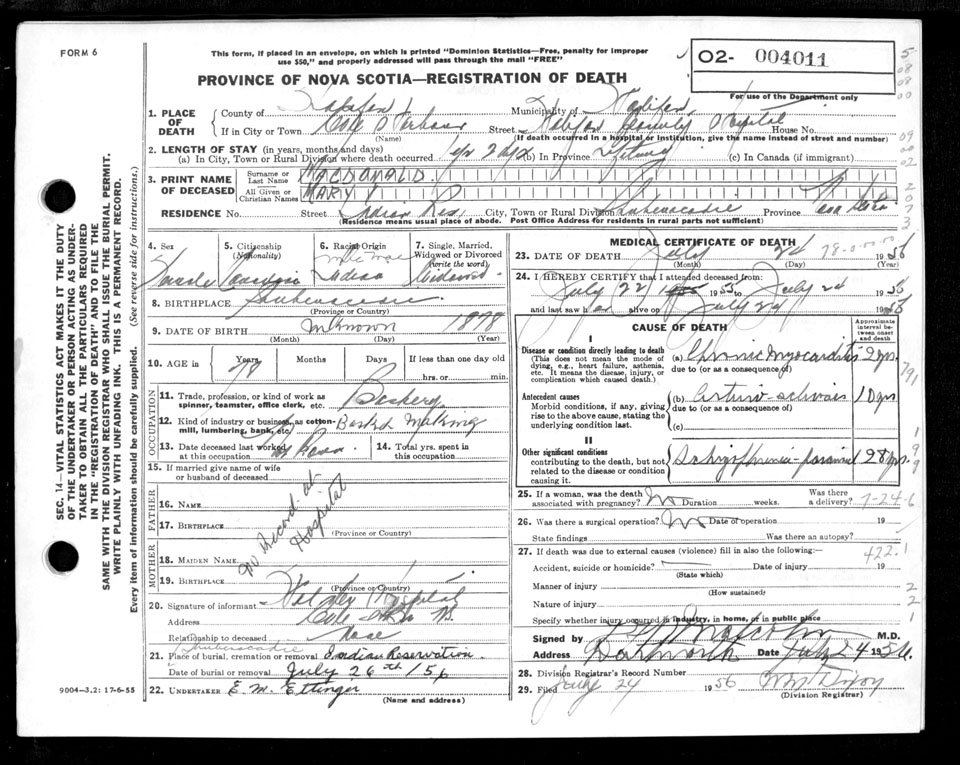 FORM 6
This form, if placed in an envelope, on which is printed "Dominion Statistics—Free, penalty for improper
use $50," and properly addressed will pass through the mail "FREE"
02- 004011
For use of the Department only
PROVINCE OF NOVA SCOTIA—REGISTRATION OF DEATH
1. PLACE OF DEATH
County of Halifax Municipality of Halifax
If in City or Town Cole Harbour Street Halifax County Hospital House No.
(Name) (If death occurred in a hospital or institution, give the name instead of street and number)
2. LENGTH OF STAY (in years, months and days)
(a) In City, Town or Rural Division where death occurred (b) In Province Lifetime (c) In Canada (if immigrant)
3. PRINT NAME OF DECEASED
Surname or Last Name MACDONALD
All Given or Christian Names MARY
RESIDENCE No. Street Indian Res City, Town or Rural Division Shubenacadie Province Nova Scotia
(Residence means usual place of abode. Post Office Address for residents in rural parts not sufficient)
4. Sex Female
5. Citizenship (Nationality) Canadian
6. Racial Origin Mic Mac Indian
7. Single, Married, Widowed or Divorced (write the word) Widowed
8. BIRTHPLACE Shubenacadie
(Province or Country)
9. DATE OF BIRTH Unknown 1878
(Month) (Day) (Year)
10. AGE in Years Months Days If less than one day old
78 hrs. or min.
OCCUPATION
11. Trade, profession, or kind of work as
spinner, teamster, office clerk, etc.
12. Kind of industry or business, as cotton-
mill, lumbering, bank, etc. Basket Making
13. Date deceased last worked
at this occupation
14. Total yrs. spent in
this occupation
15. If married give name of wife
or husband of deceased
FATHER
16. NAME
17. BIRTHPLACE
(Province or Country)
MOTHER
18. MAIDEN NAME
19. BIRTHPLACE
(Province or Country)
No Record at Hospital
20. Signature of informant Hospital
Address Cole
Relationship to deceased None
Shubenacadie
21. Place of burial, cremation or removal Indian Reservation
Date of burial or removal July 26th /56
22. UNDERTAKER E. M. Ettinger
(Name and address)
9004-3.2: 17-6-55
MEDICAL CERTIFICATE OF DEATH
23. DATE OF DEATH July 24 1956
(Month) (Day) (Year)
78-0-00-00
24. I HEREBY CERTIFY that I attended deceased from:
July 22 1955 to July 24 1956
and last saw her alive on July 24 1956
CAUSE OF DEATH
Approximate interval between onset and death
I
Disease or condition directly leading to death
(This does not mean the mode of dying, e.g., heart failure, asthenia, etc. It means the disease, injury, or complication which caused death.)
(a) Chronic Myocarditis 2 yrs.
due to (or as a consequence of)
Antecedent causes
Morbid conditions, if any, giving rise to the above cause, stating the underlying condition last.
(b) 10 yrs
due to (or as a consequence of)
(c)
II
Other significant conditions
contributing to the death, but not related to the disease or condition causing it.
Schizophrenia-paranoid 28 yrs.
25. If a woman, was the death
associated with pregnancy? No Duration weeks.
Was there a delivery?
7-24-6
26. Was there a surgical operation? No Date of operation 19
State findings Was there an autopsy?
27. If death was due to external causes (violence) fill in also the following:—
422.1
Accident, suicide or homicide? Date of injury 19
(State which)
Manner of injury
(How sustained)
Nature of injury
Specify whether injury occurred in industry, in home, or in public place
Signed by M.D.
Address Dartmouth Date July 24 1956
28. Division Registrar's Record Number
29. Filed July 24 1956
(Division Registrar)
SEC. 14—VITAL STATISTICS ACT MAKES IT THE DUTY
OF THE UNDERTAKER OR PERSON ACTING AS UNDER-
TAKER TO OBTAIN ALL THE PARTICULARS REQUIRED
IN THE "REGISTRATION OF DEATH" AND TO FILE THE
SAME WITH THE DIVISION REGISTRAR WHO SHALL ISSUE THE BURIAL PERMIT.
WRITE PLAINLY WITH UNFADING INK. THIS IS A PERMANENT RECORD.
Every item of information should be carefully supplied. (See reverse side for instructions.)